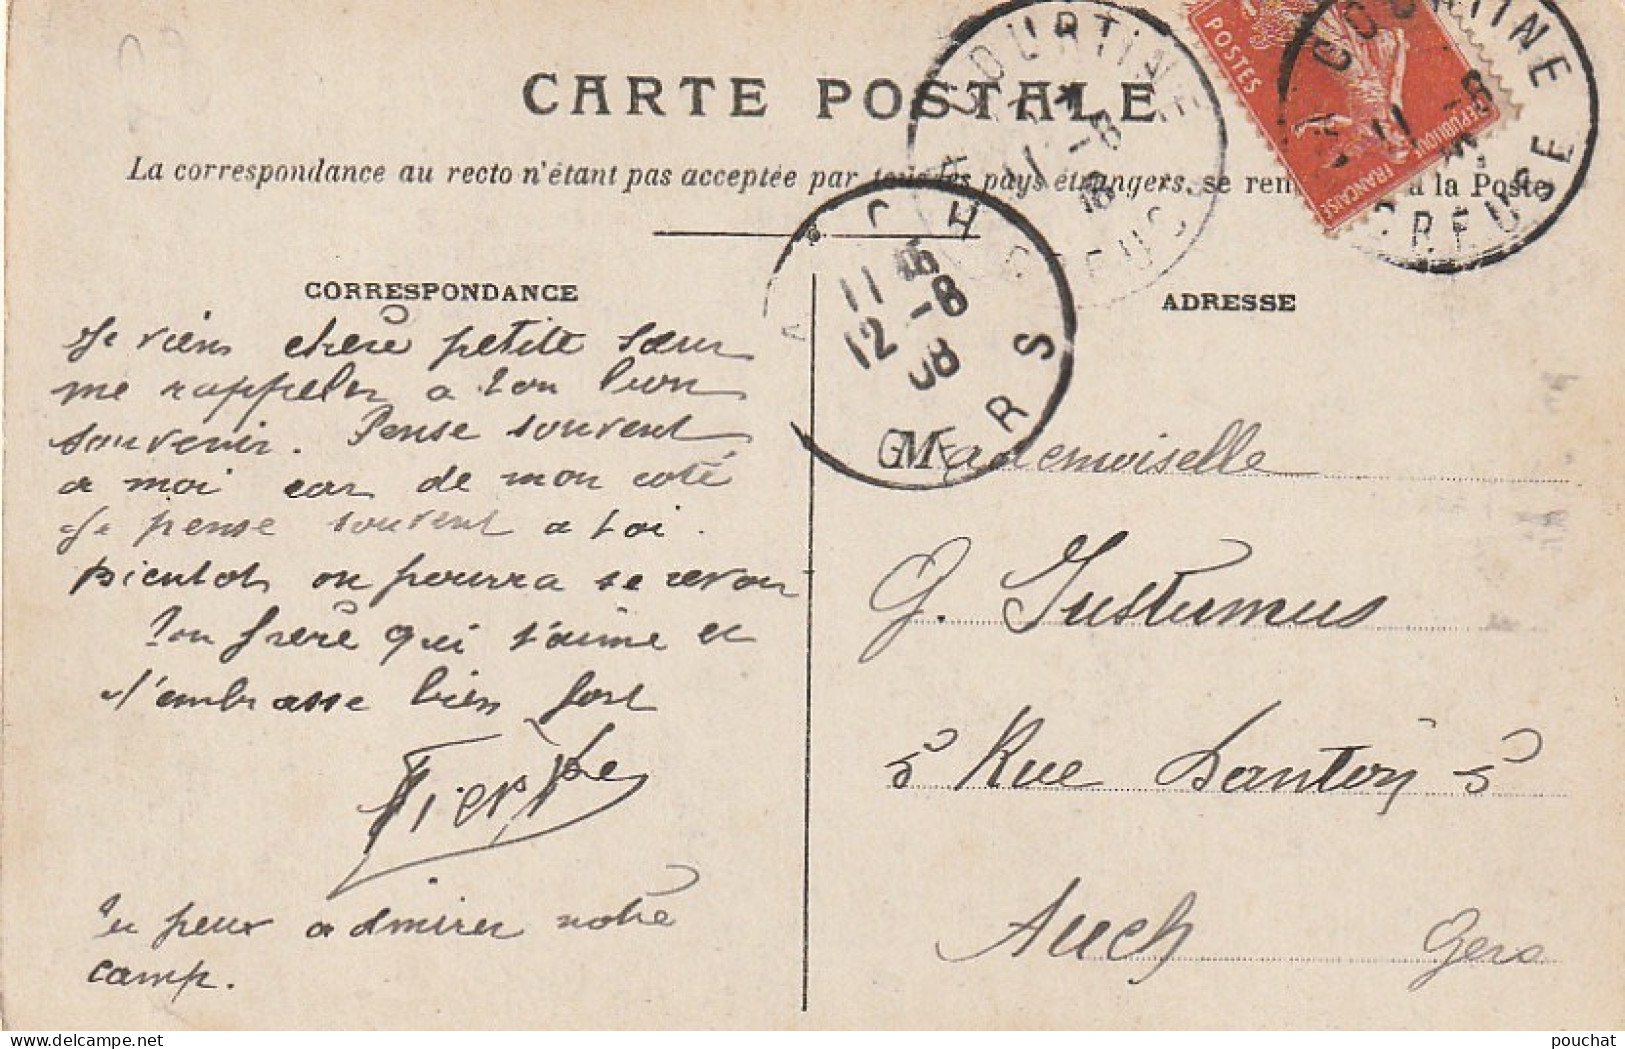 CARTE POSTALE
La correspondance au recto n'étant pas acceptée par tous les pays étrangers, se ren à la Poste
LA COURTINE
11 -8
08
CREUSE
POSTES
REPUBLIQUE FRANÇAISE
LA COURTINE
11 -8
CREUSE
AUCH
11 15
12 -8
08
GERS
CORRESPONDANCE
Je viens chère petite sœur
me rappeler a ton bon
souvenir. Pense souvent
a moi car de mon coté
Je pense souvent a toi.
Bientot on pourra se revoir
Ton frère qui t'aime et
t'embrasse bien fort
Tu peux admirer notre
camp.
ADRESSE
Mademoiselle
G. Justumus
5 Rue Danton 5
Auch Gers
pouchat